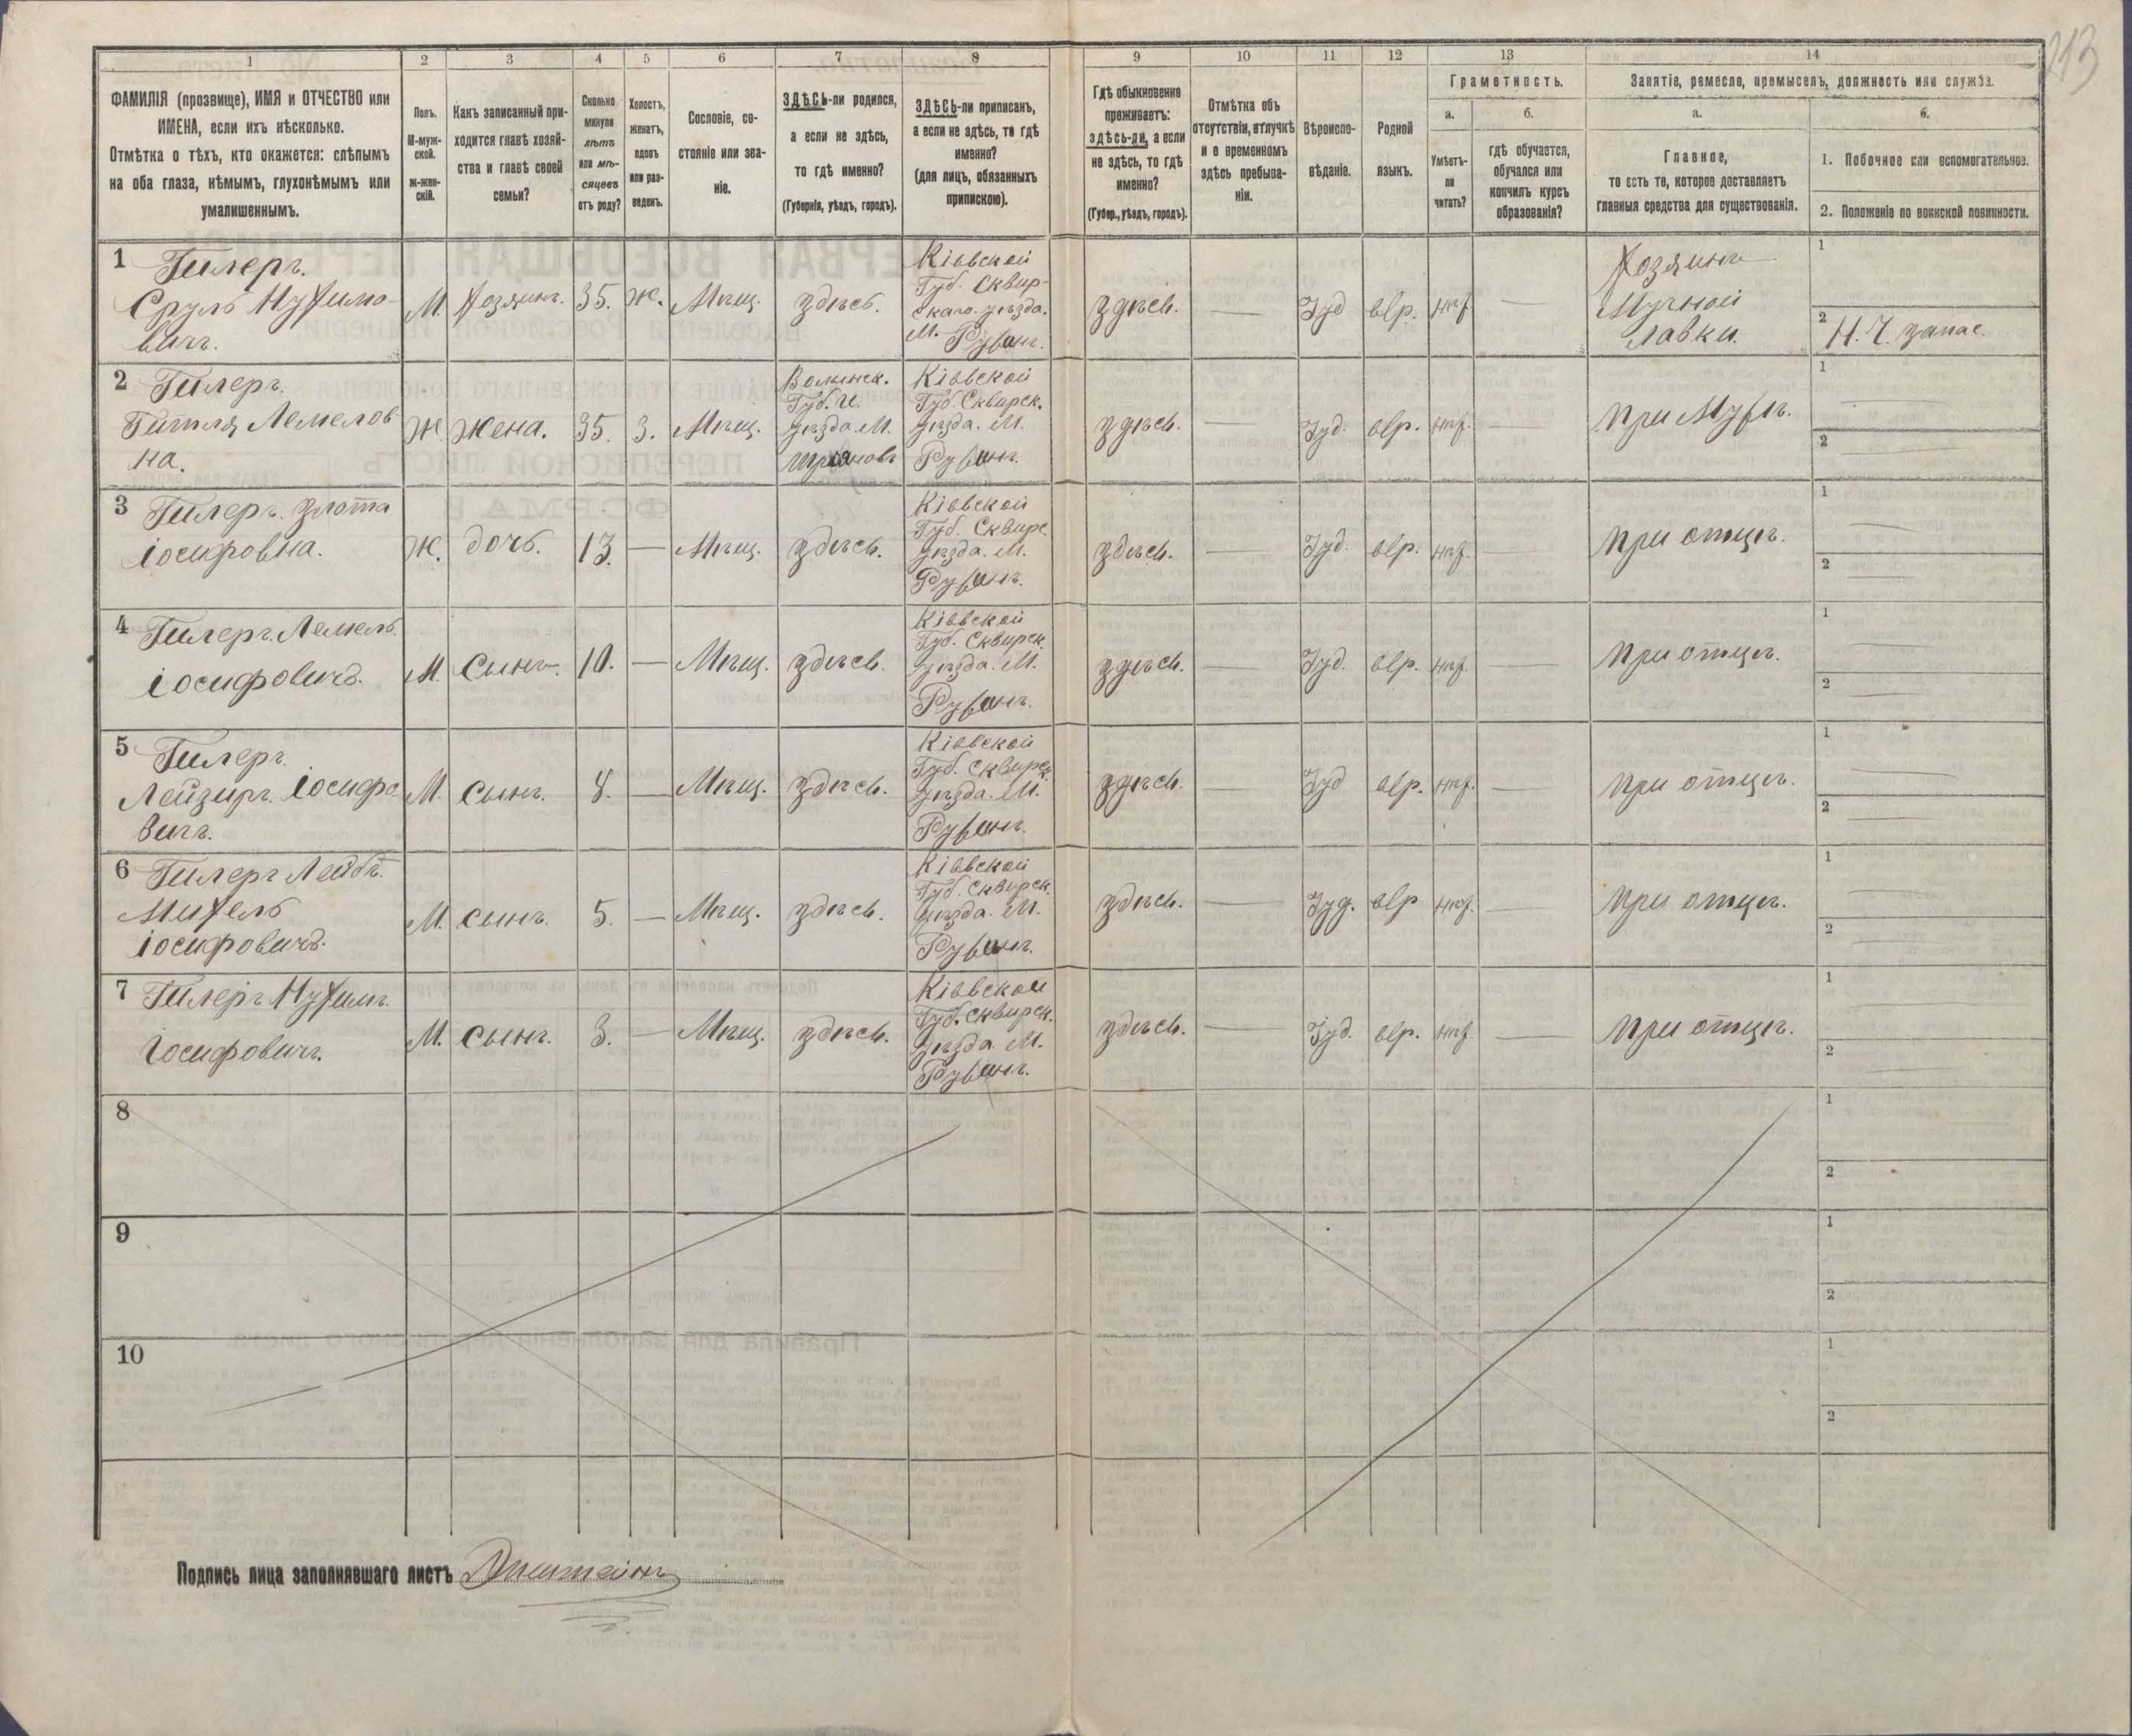 213
1 2 3 4 5 6 7 8 9 10 11 12 13 14
ФАМИЛІЯ (прозвище), ИМЯ и ОТЧЕСТВО или
ИМЕНА, если ихъ нѣсколько.
Отмѣтка о тѣхъ, кто окажется: слѣпымъ
на оба глаза, нѣмымъ, глухонѣмымъ или
умалишеннымъ.
Полъ.
М-муж-
ской.
Ж-жен-
скій.
Какъ записанный при-
ходится главѣ хозяй-
ства и главѣ своей
семьи?
Сколько
минуло
лѣтъ
или мѣ-
сяцевъ
отъ роду?
Холостъ,
женатъ,
вдовъ
или раз-
веденъ.
Сословіе, со-
стояніе или зва-
ніе.
ЗДѢСЬ-ли родился,
а если не здѣсь,
то гдѣ именно?
(Губернія, уѣздъ, городъ).
ЗДѢСЬ-ли приписанъ,
а если не здѣсь, то гдѣ
именно?
(для лицъ, обязанныхъ
припискою).
Гдѣ обыкновенно
проживаетъ:
здѣсь-ли, а если
не здѣсь, то гдѣ
именно?
(Губер., уѣздъ, городъ).
Отмѣтка объ
отсутствіи, отлучкѣ
и о временномъ
здѣсь пребыва-
ніи.
Вѣроиспо-
вѣданіе.
Родной
языкъ.
Грамотность.
а.
Умѣетъ-
ли
читать?
б.
гдѣ обучается,
обучался или
кончилъ курсъ
образованія?
Занятіе, ремесло, промыселъ, должность или служба.
а.
Главное,
то есть то, которое доставляетъ
главныя средства для существованія.
б.
1. Побочное или вспомогательное.
2. Положеніе по воинской повинности.
1 Гилеръ.
Сруль Нухимо-
вичъ.
М. Хозяинъ. 35. Ж. Мѣщ. здѣсь.
Кіевской
Губ. Сквир-
скаго уѣзда.
М. Ружинъ.
здѣсь. — Іуд евр. нѣт —
Хозяинъ
Мучной
Лавки.
1
2 Н. Ч. запас.
2 Гилеръ.
Гитля Лемелов
на.
Ж Жена. 35. З. Мѣщ.
Волынск.
Губ. И.
уѣзда. М.
Кіевской
Губ. Сквирск.
уѣзда. М.
Ружинъ.
здѣсь. — Іуд. евр. нѣт. — при Мужѣ.
1
2
3 Гилеръ. Злота
іосифовна.
Ж. дочь. 13. — Мѣщ. здѣсь.
Кіевской
Губ. Сквирс.
уѣзда. М.
Ружинъ.
здѣсь. — Іуд. евр. нѣт. — при отцѣ.
1
2
4 Гилеръ. Лемель.
іосифовичъ.
М. Сынъ. 10. — Мѣщ. здѣсь.
Кіевской
Губ. Сквирск.
уѣзда. М.
Ружинъ.
здѣсь. — Іуд. евр. нѣт. — при отцѣ.
1
2
5 Гилеръ.
Лейзиръ. Іосифо
вичъ.
М. сынъ. 8. — Мѣщ. здѣсь.
Кіевской
Губ. Сквирск.
уѣзда. М.
Ружинъ.
здѣсь. — Іуд евр. нѣт. — при отцѣ.
1
2
6 Гилеръ Лейбъ.
Михель
іосифовичъ.
М. сынъ. 5. — Мѣщ. здѣсь.
Кіевской
Губ. Сквирск.
уѣзда. М.
Ружинъ.
здѣсь. — Іуд. евр нѣт. — при отцѣ.
1
2
7 Гилеръ Нухимъ.
Іосифовичъ.
М. сынъ. 3. — Мѣщ. здѣсь.
Кіевской
Губ. Сквирск.
уѣзда М.
Ружинъ.
здѣсь. — Іуд. евр. нѣт — при отцѣ.
1
2
8
1
2
9
1
2
10
1
2
Подпись лица заполнявшаго листъ